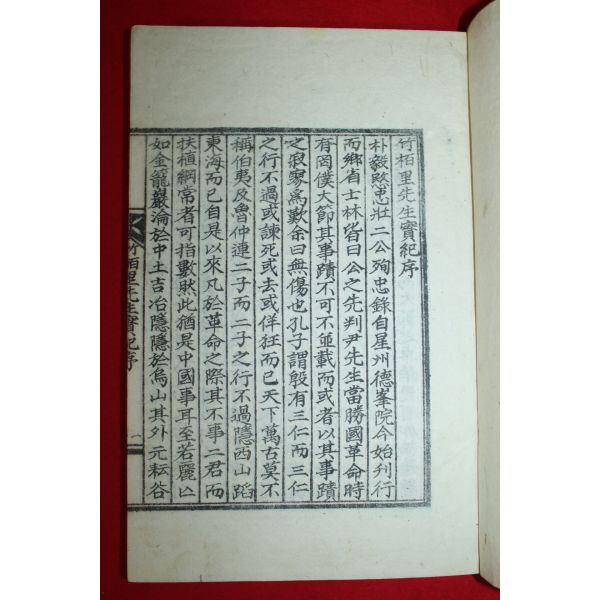 竹栢里先生實紀序
朴毅愍忠壯二公殉忠錄自星州德峯院今始刊行
而鄉省士林皆曰公之先判尹先生當勝國革命時
有罔僕大節其事蹟不可不並載而或者以其事蹟
之寂寥爲歎余曰無傷也孔子謂殷有三仁而三仁
之行不過或諫死或去或佯狂而已天下萬古莫不
稱伯夷及魯仲連二子而二子之行不過隱西山蹈
東海而已自是以來凡於革命之際其不事二君而
扶植綱常者可指數然此猶是中國事耳至若麗亡
如金籠巖淪於中土吉冶隱隱於烏山其外元耘谷
竹栢里先生實紀序
一